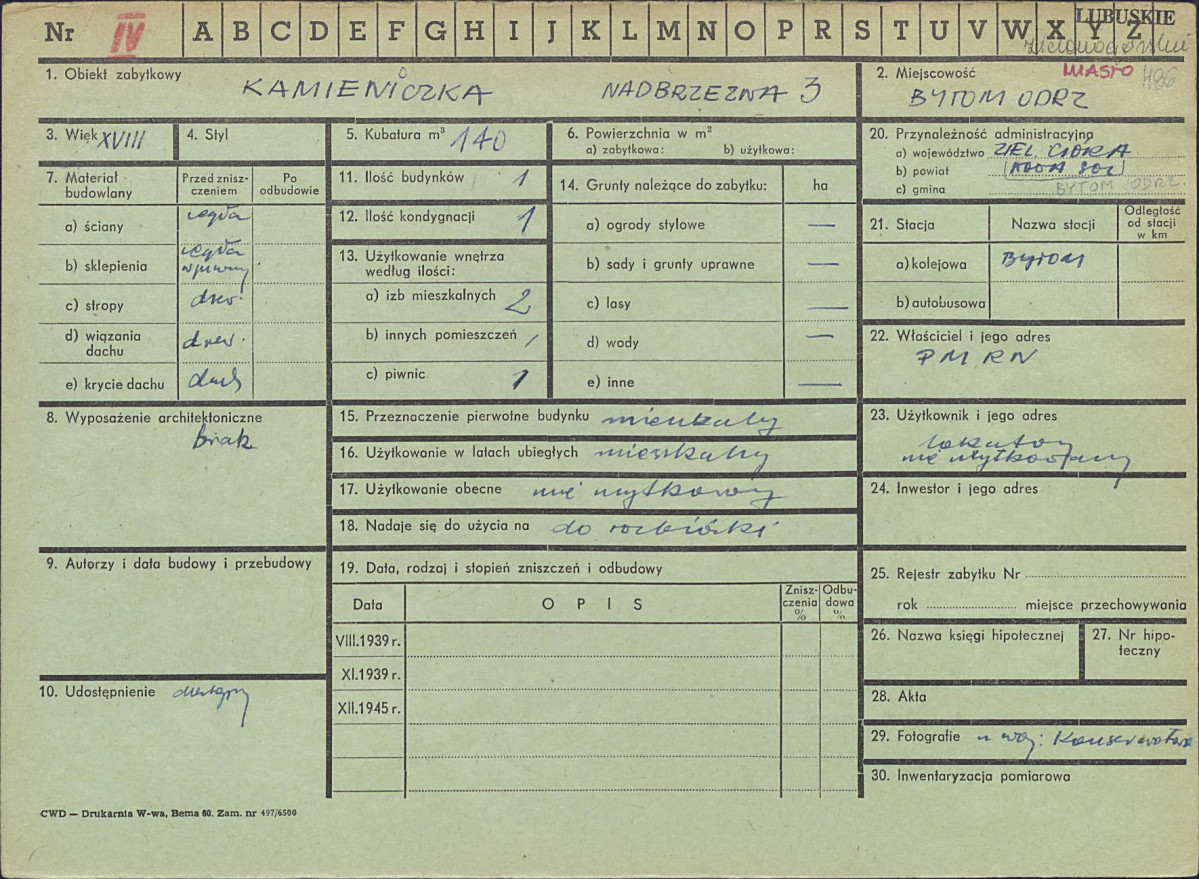 Nr IV A B C D E F G H I J K L M N O P R S T U V W X Y Z LUBUSKIE
zielonogórskie
1. Obiekt zabytkowy
KAMIENICZKA NADBRZEŻNA 3
2. Miejscowość MIASTO 486
BYTOM ODRZ
3. Więk XVIII
4. Styl
5. Kubatura m³ 140
6. Powierzchnia w m²
a) zabytkowa: b) użytkowa:
7. Materiał budowlany
Przed zniszczeniem
Po odbudowie
a) ściany cegła
b) sklepienia cegła
c) stropy drew.
d) wiązania dachu drew.
e) krycie dachu dach
8. Wyposażenie architektoniczne
brak
9. Autorzy i data budowy i przebudowy
10. Udostępnienie dostępny
11. Ilość budynków 1
12. Ilość kondygnacji 1
13. Użytkowanie wnętrza
według ilości:
a) izb mieszkalnych 2
b) innych pomieszczeń 1
c) piwnic 1
14. Grunty należące do zabytku: ha
a) ogrody stylowe —
b) sady i grunty uprawne —
c) lasy —
d) wody —
e) inne —
15. Przeznaczenie pierwotne budynku mieszkalny
16. Użytkowanie w latach ubiegłych mieszkalny
17. Użytkowanie obecne nie użytkowany
18. Nadaje się do użycia na do rozbiórki
19. Data, rodzaj i stopień zniszczeń i odbudowy
Data O P I S Zniszczenia % Odbudowa %
VIII.1939 r.
XI.1939 r.
XII.1945 r.
20. Przynależność administracyjna
a) województwo ZIEL. GÓRA
b) powiat NOWA SÓL
c) gmina BYTOM ODRZ.
21. Stacja Nazwa stacji Odległość od stacji w km
a) kolejowa BYTOM
b) autobusowa
22. Właściciel i jego adres
PMRN
23. Użytkownik i jego adres
lokatorzy
nie użytkowany
24. Inwestor i jego adres
25. Rejestr zabytku Nr
rok miejsce przechowywania
26. Nazwa księgi hipotecznej
27. Nr hipoteczny
28. Akta
29. Fotografie u woj. Konserwatora
30. Inwentaryzacja pomiarowa
CWD — Drukarnia W-wa, Bema 60. Zam. nr 497/6500